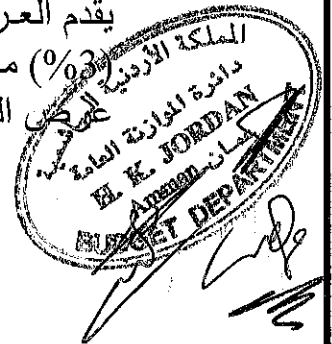 يقدم العر
(3%) م
عرض ال
المملكة الأردنية الهاشمية
دائرة الموازنة العامة
H. K. JORDAN
Amman عمان
BUDGET DEPARTMENT